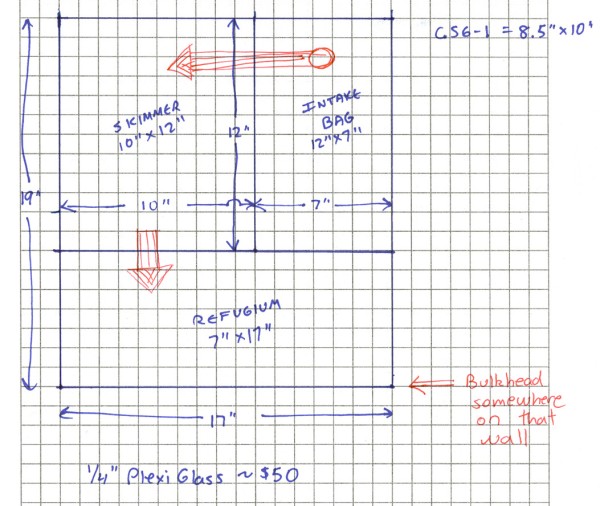 CS6-1 = 8.5" x 10"
SKIMMER
10" X 12"
12"
INTAKE
BAG
12" X 7"
19"
10"
7"
REFUGIUM
7" X 17"
Bulkhead
somewhere
on that
wall
17"
1/4" Plexi Glass ~ $50